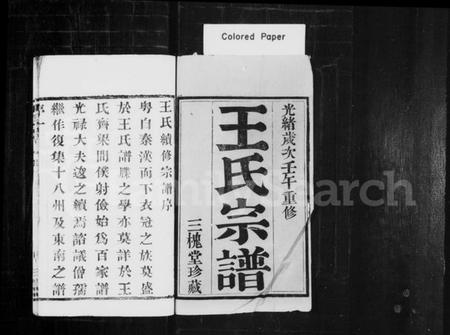 Colored Paper
光緒歲次壬午重修
王氏宗譜
三槐堂珍藏
王氏續修宗譜序
粤自秦漢而下衣冠之族莫盛
於王氏譜牒之學亦莫詳於王
氏齊梁間僕射儉始爲百家譜
光祿大夫逡之續焉諮議僧孺
繼作復集十八州及東南之譜